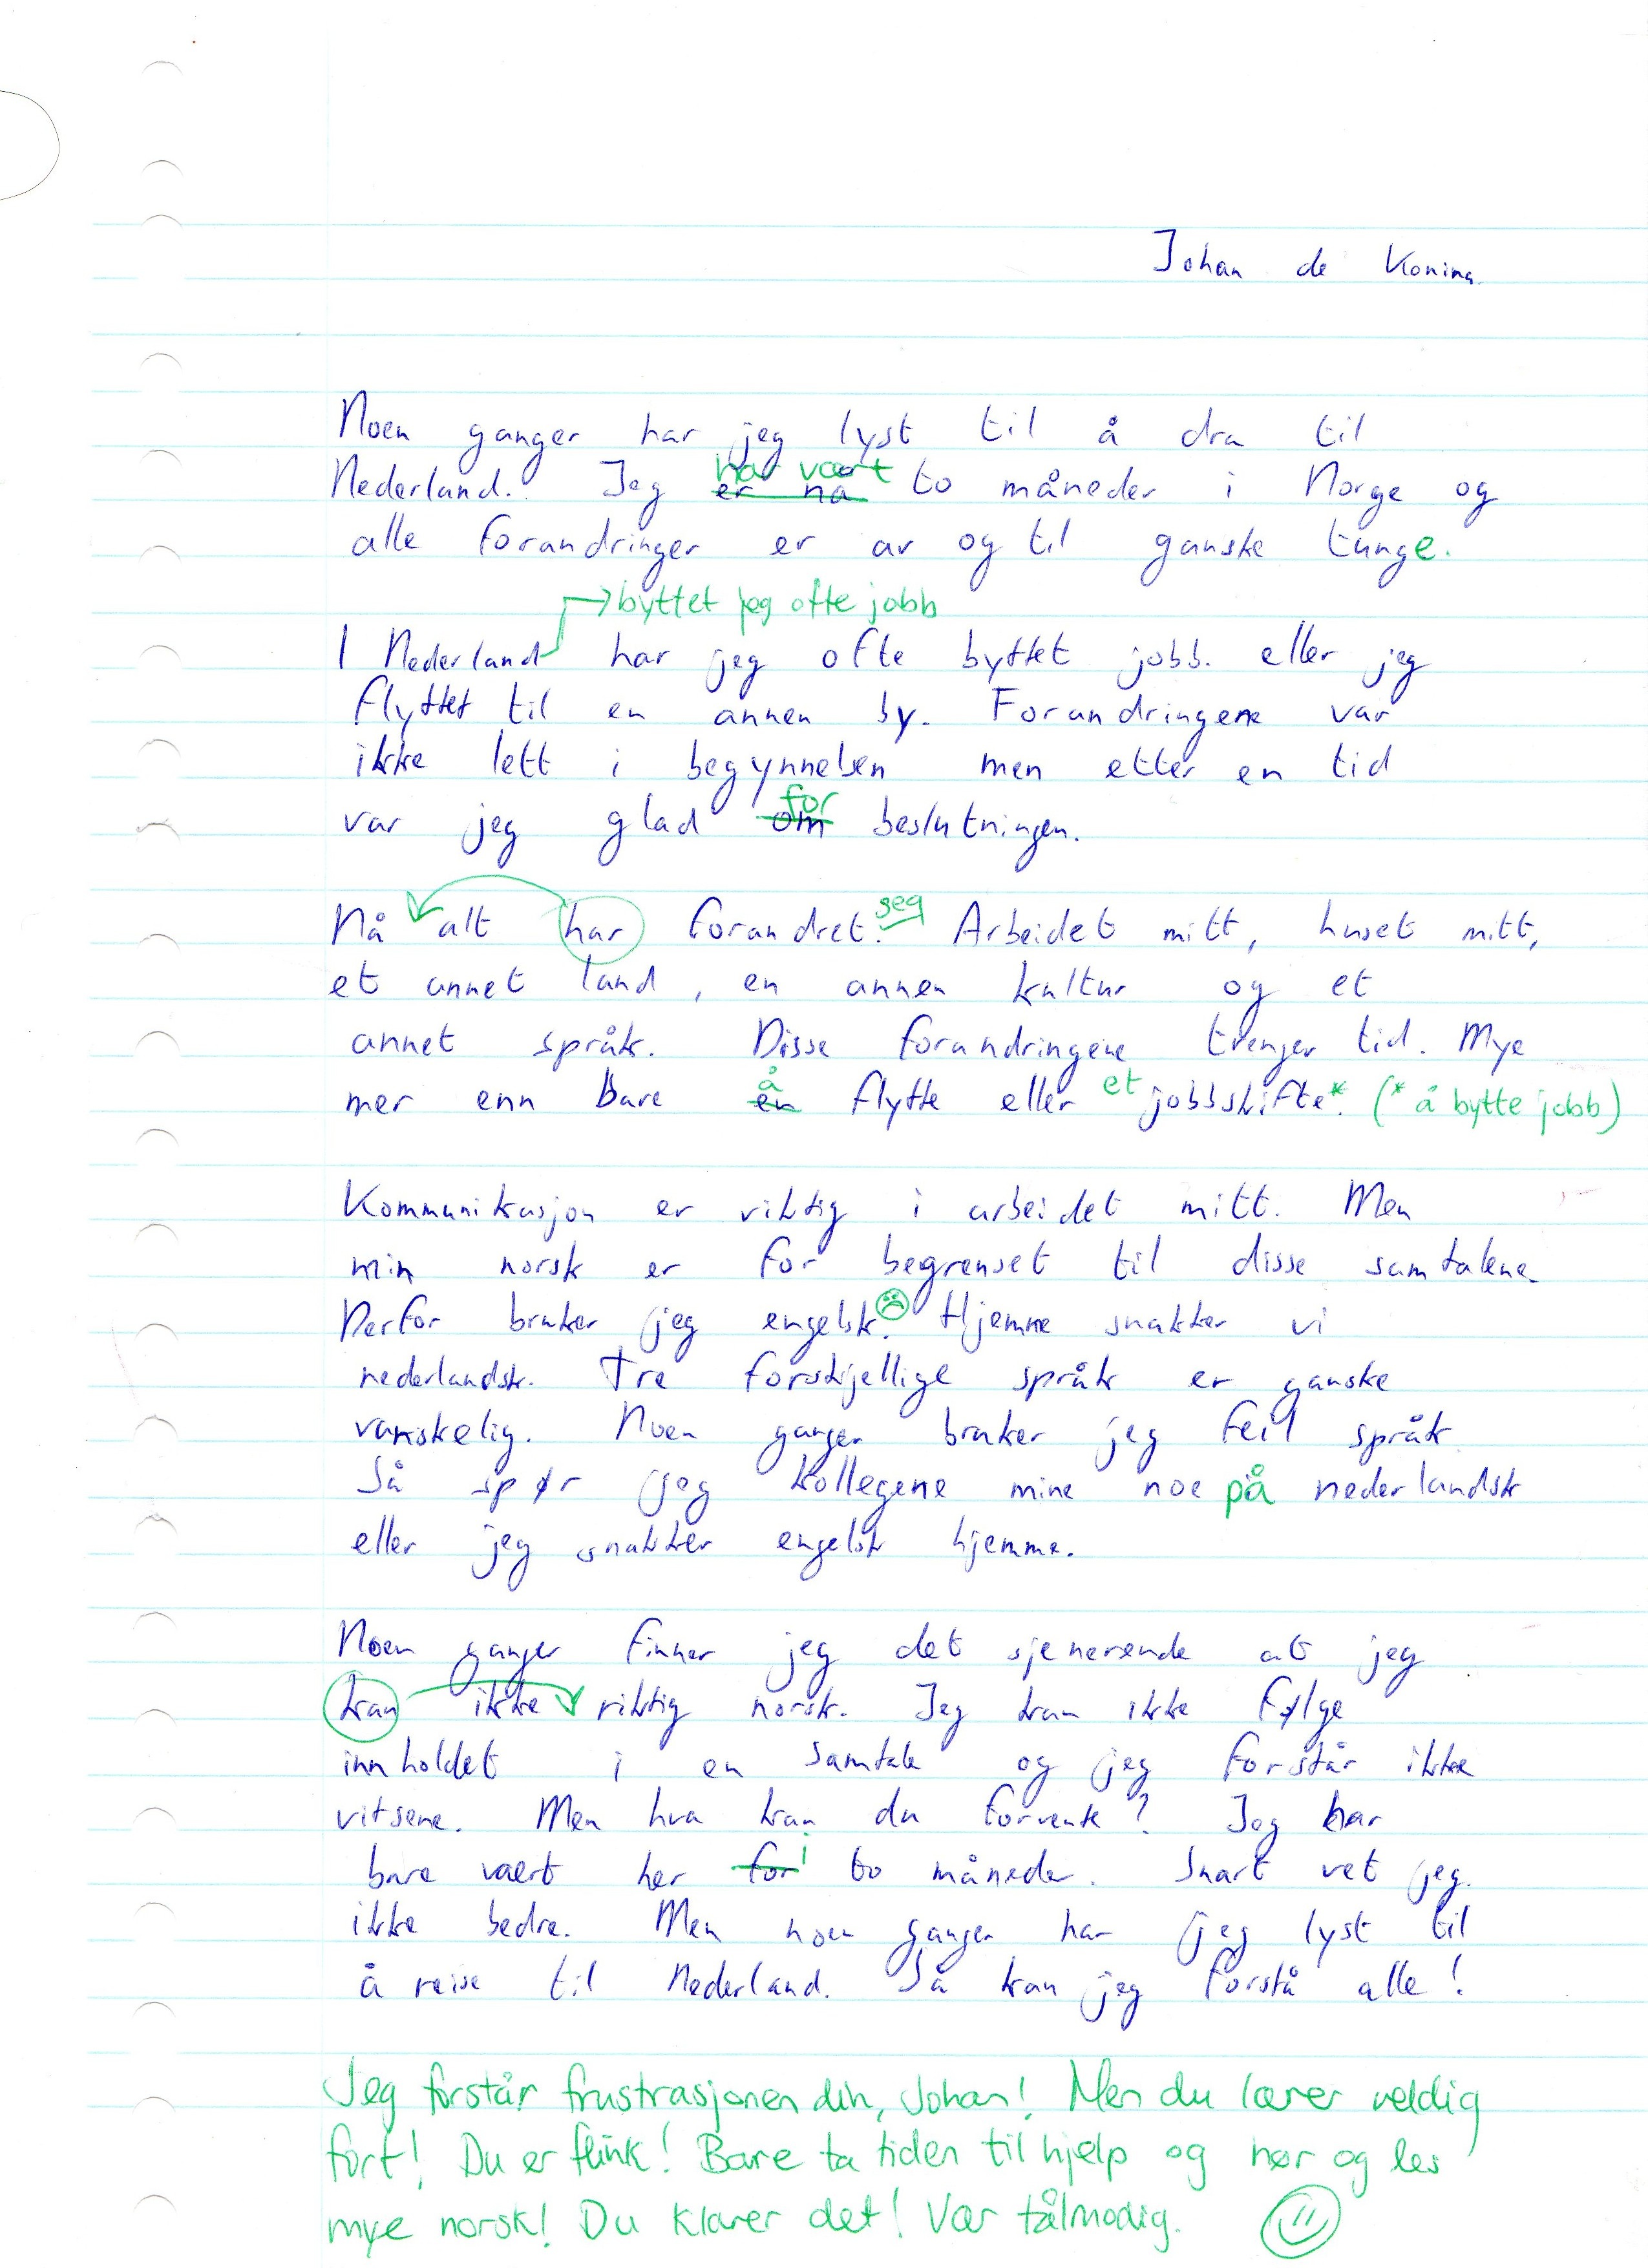 Johan de Koning
Noen ganger har jeg lyst til å dra til
har vært
Nederland. Jeg er nå to måneder i Norge og
alle forandringer er av og til ganske tunge.
→ byttet jeg ofte jobb
I Nederland har jeg ofte byttet jobb. eller jeg
flyttet til en annen by. Forandringene var
ikke lett i begynnelsen men etter en tid
for
var jeg glad om beslutningen.
seg
Nå alt har forandret. Arbeidet mitt, huset mitt,
et annet land, en annen kultur og et
annet språk. Disse forandringene trenger tid. Mye
å
mer enn bare en flytte eller et jobbskifte*. (* å bytte jobb)
Kommunikasjon er viktig i arbeidet mitt. Men
min norsk er for begrenset til disse samtalene.
Derfor bruker jeg engelsk. Hjemme snakker vi
nederlandsk. Tre forskjellige språk er ganske
vanskelig. Noen ganger bruker jeg feil språk
Så spør jeg kollegene mine noe på nederlandsk
eller jeg snakker engelsk hjemme.
Noen ganger finner jeg det sjenerende at jeg
kan ikke riktig norsk. Jeg kan ikke følge
innholdet i en samtale og jeg forstår ikke
vitsene. Men hva kan du forvente? Jeg har
i
bare vært her for to måneder. Snart vet jeg.
ikke bedre. Men noen ganger har jeg lyst til
å reise til Nederland. Så kan jeg forstå alle!
Jeg forstår frustrasjonen din, Johan! Men du lærer veldig
fort! Du er flink! Bare ta tiden til hjelp og hør og les
mye norsk! Du klarer det! Vær tålmodig.